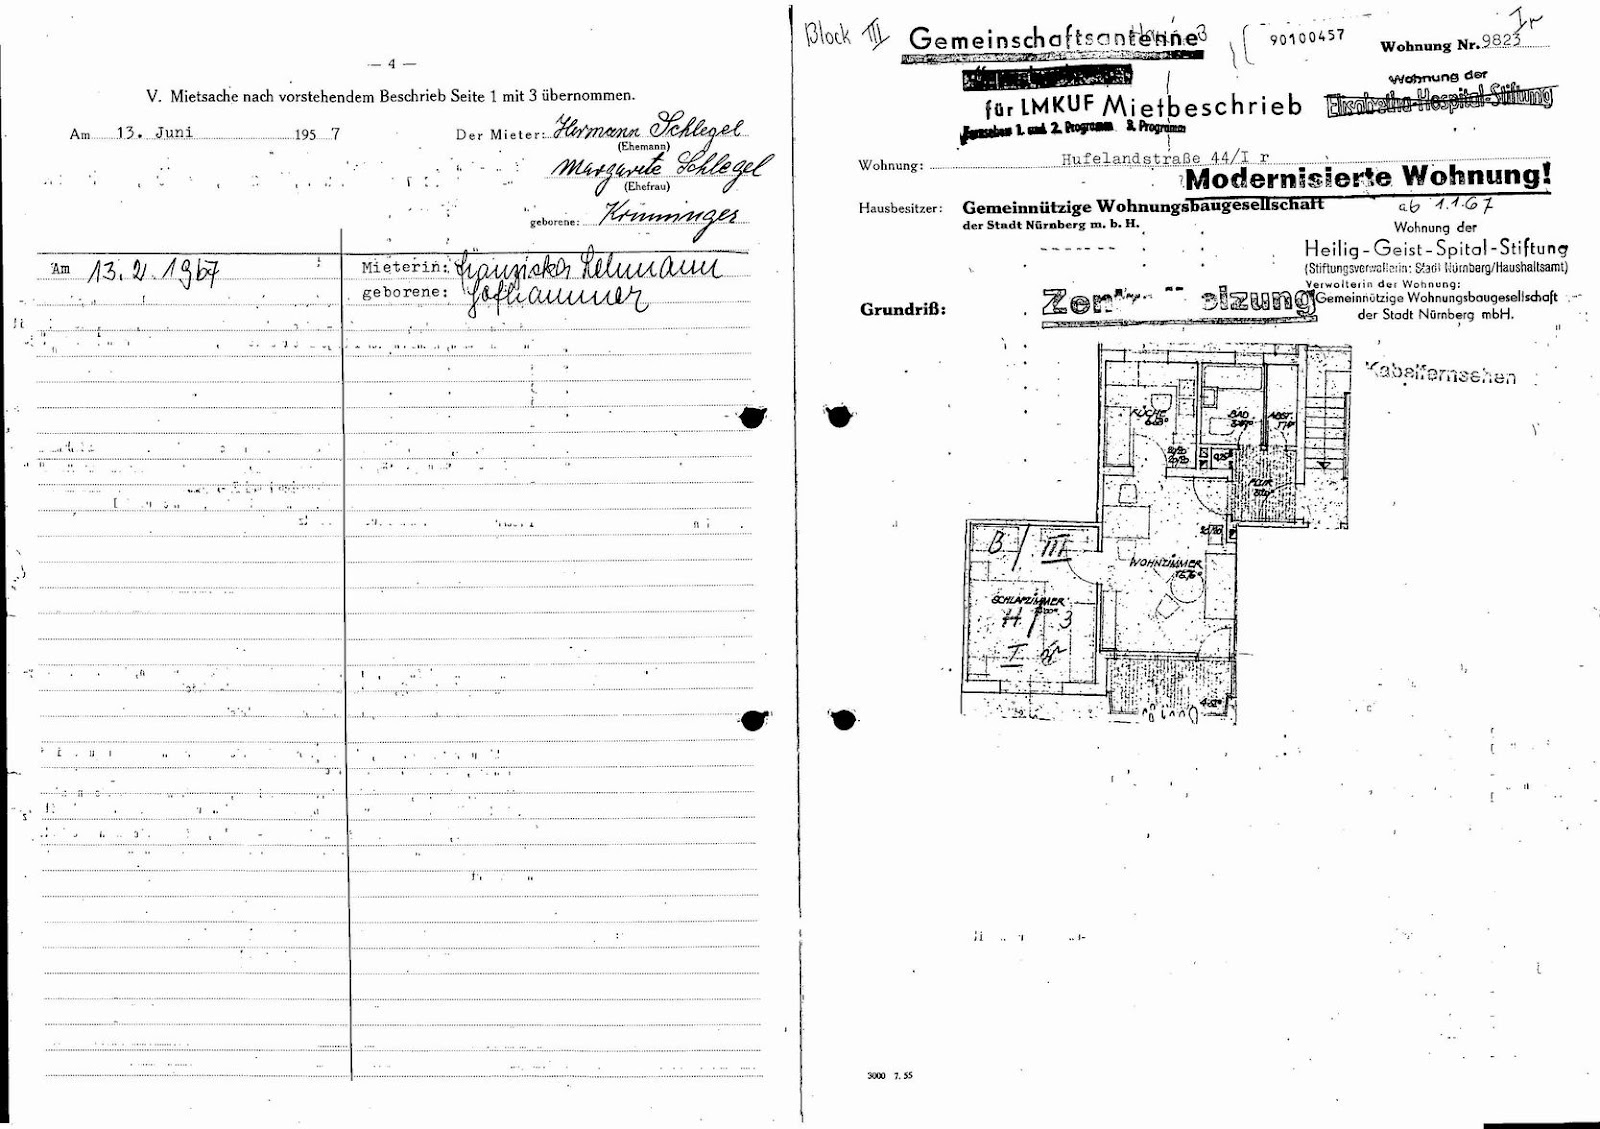 — 4 —
V. Mietsache nach vorstehendem Beschrieb Seite 1 mit 3 übernommen.
Am 13. Juni 195 7 Der Mieter: Hermann Schlegel
(Ehemann)
Margarete Schlegel
(Ehefrau)
geborene:
Am 13.2.1967 Mieterin: Franziska Lehmann
geborene: Hofhammer
Block III Gemeinschaftsantenne 3 90100457 Wohnung Nr. 9823 Ir
für LMKUF Mietbeschrieb
Wohnung der
Elisabetha-Hospital-Stiftung
Fernsehen 1. und 2. Programm 3. Programm
Wohnung: Hufelandstraße 44/I r
Modernisierte Wohnung!
Hausbesitzer: Gemeinnützige Wohnungsbaugesellschaft
der Stadt Nürnberg m. b. H.
ab 1.1.67
Wohnung der
Heilig-Geist-Spital-Stiftung
(Stiftungsverwalterin: Stadt Nürnberg/Haushaltsamt)
Verwalterin der Wohnung:
Gemeinnützige Wohnungsbaugesellschaft
der Stadt Nürnberg mbH.
Grundriß: Zentralheizung
Kabelfernsehen
KÜCHE
BAD
ABST.
FLUR
B III
WOHNZIMMER
SCHLAFZIMMER
H 3
I r
3000 7. 55